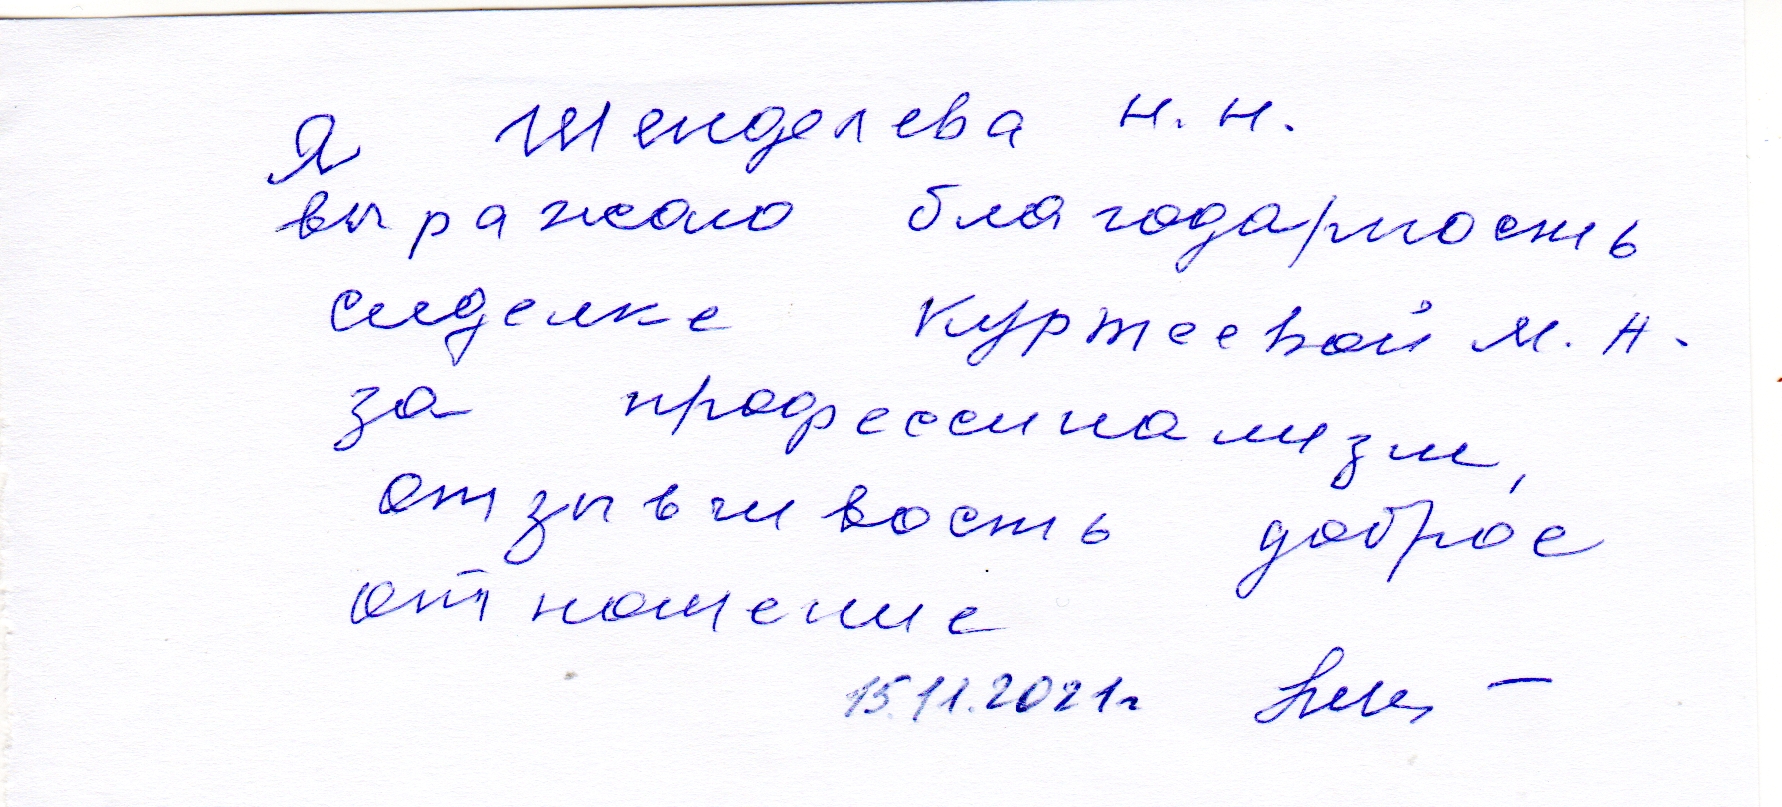 Я Шенделева Н. Н.
выражаю благодарность
сиделке Куртеевой М. Н.
за профессинализм,
отзывчивость доброе
отношение
15.11.2021г